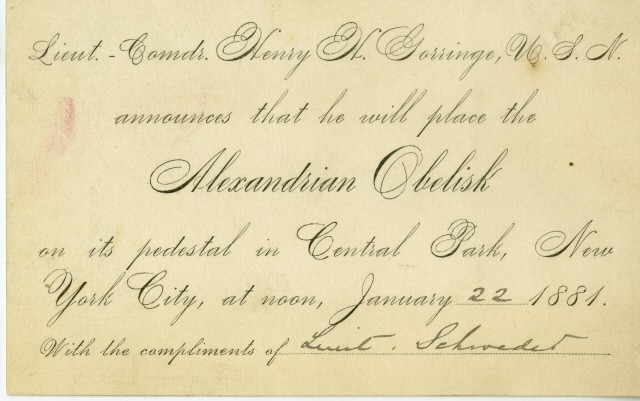 Lieut.-Comdr. Henry H. Gorringe, U. S. N.
announces that he will place the
Alexandrian Obelisk
on its pedestal in Central Park, New
York City, at noon, January 22 1881.
With the compliments of Lieut.